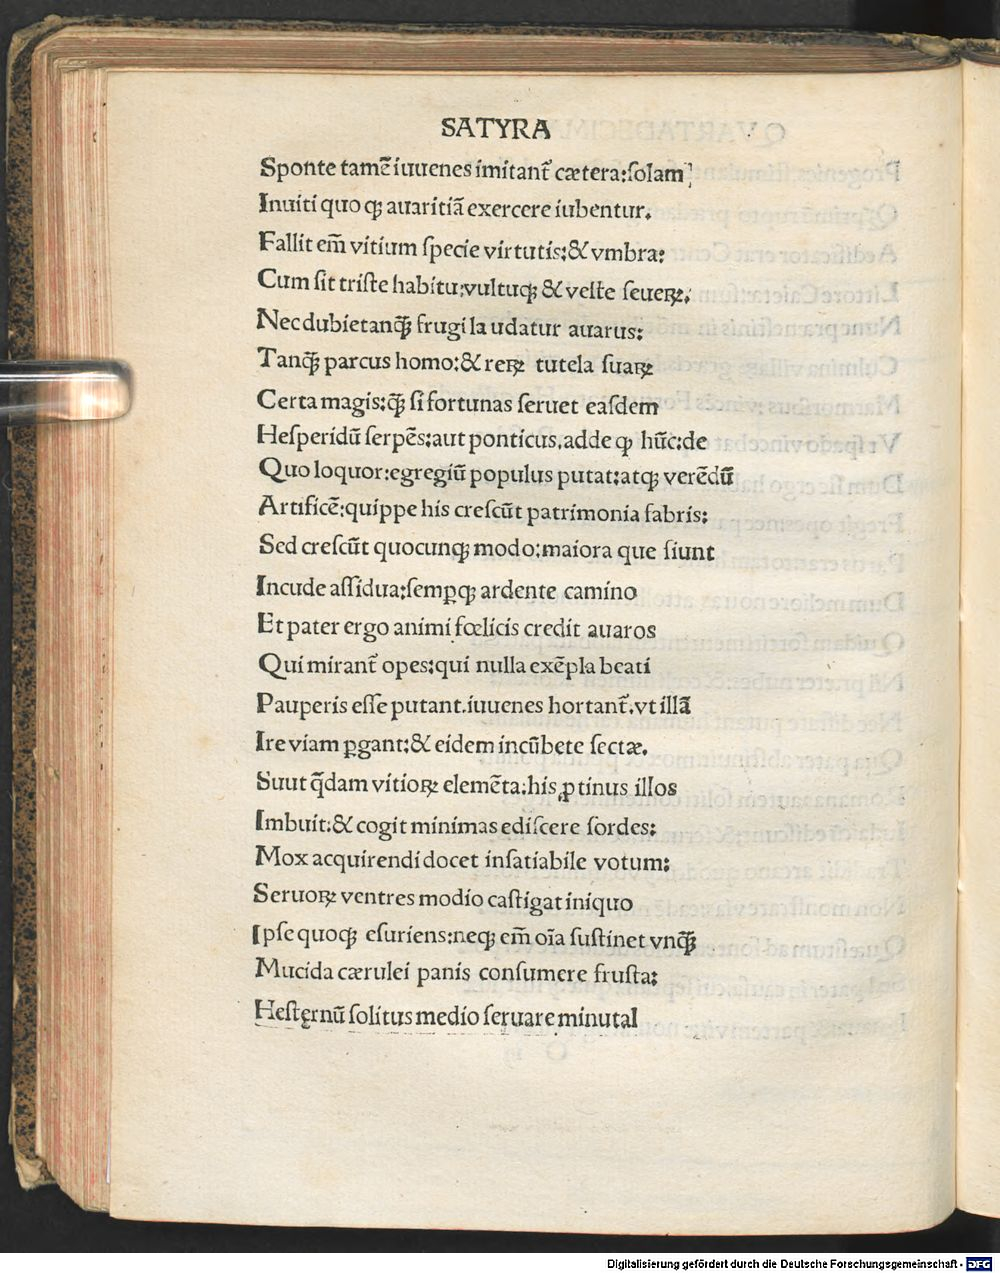 SATYRA
Sponte tamē iuuenes imitant᷑ cætera:ſolam
Inuiti quoqꝫ auaritiā exercere iubentur.
Fallit em̄ vitium ſpecie virtutis:&vmbra:
Cum ſit triſte habitu:vultuqꝫ & veſte ſeueꝝ.
Nec dubie tanqꝫ̄ frugi laudatur auarus:
Tanqꝫ̄ parcus homo:& reꝝ tutela ſuaꝝ
Certa magis:qꝫ̄ ſi fortunas ſeruet eaſdem
Heſperidū ſerpēs:aut ponticus.adde ꝙ hūc:de
Quo loquor:egregiū populus putat:atqꝫ verēdū
Artificē:quippe his creſcūt patrimonia fabris:
Sed creſcūt quocunqꝫ modo:maiora que fiunt
Incude aſſidua:ſemꝑqꝫ ardente camino
Et pater ergo animi fœlicis credit auaros
Qui mirant᷑ opes:qui nulla exēpla beati
Pauperis eſſe putant.iuuenes hortant᷑.vt illā
Ire viam ꝑgant:& eidem incūbete ſectæ.
Suut q̄dam vitioꝝ elemēta:his ꝓtinus illos
Imbuit:& cogit minimas ediſcere ſordes:
Mox acquirendi docet inſatiabile votum:
Seruoꝝ ventres modio caſtigat iniquo
Ipſe quoqꝫ eſuriens:neqꝫ em̄ oīa ſuſtinet vnqꝫ̄
Mucida cærulei panis conſumere fruſta:
Heſternū ſolitus medio ſeruare minutal
Digitalisierung gefördert durch die Deutsche Forschungsgemeinschaft - DFG